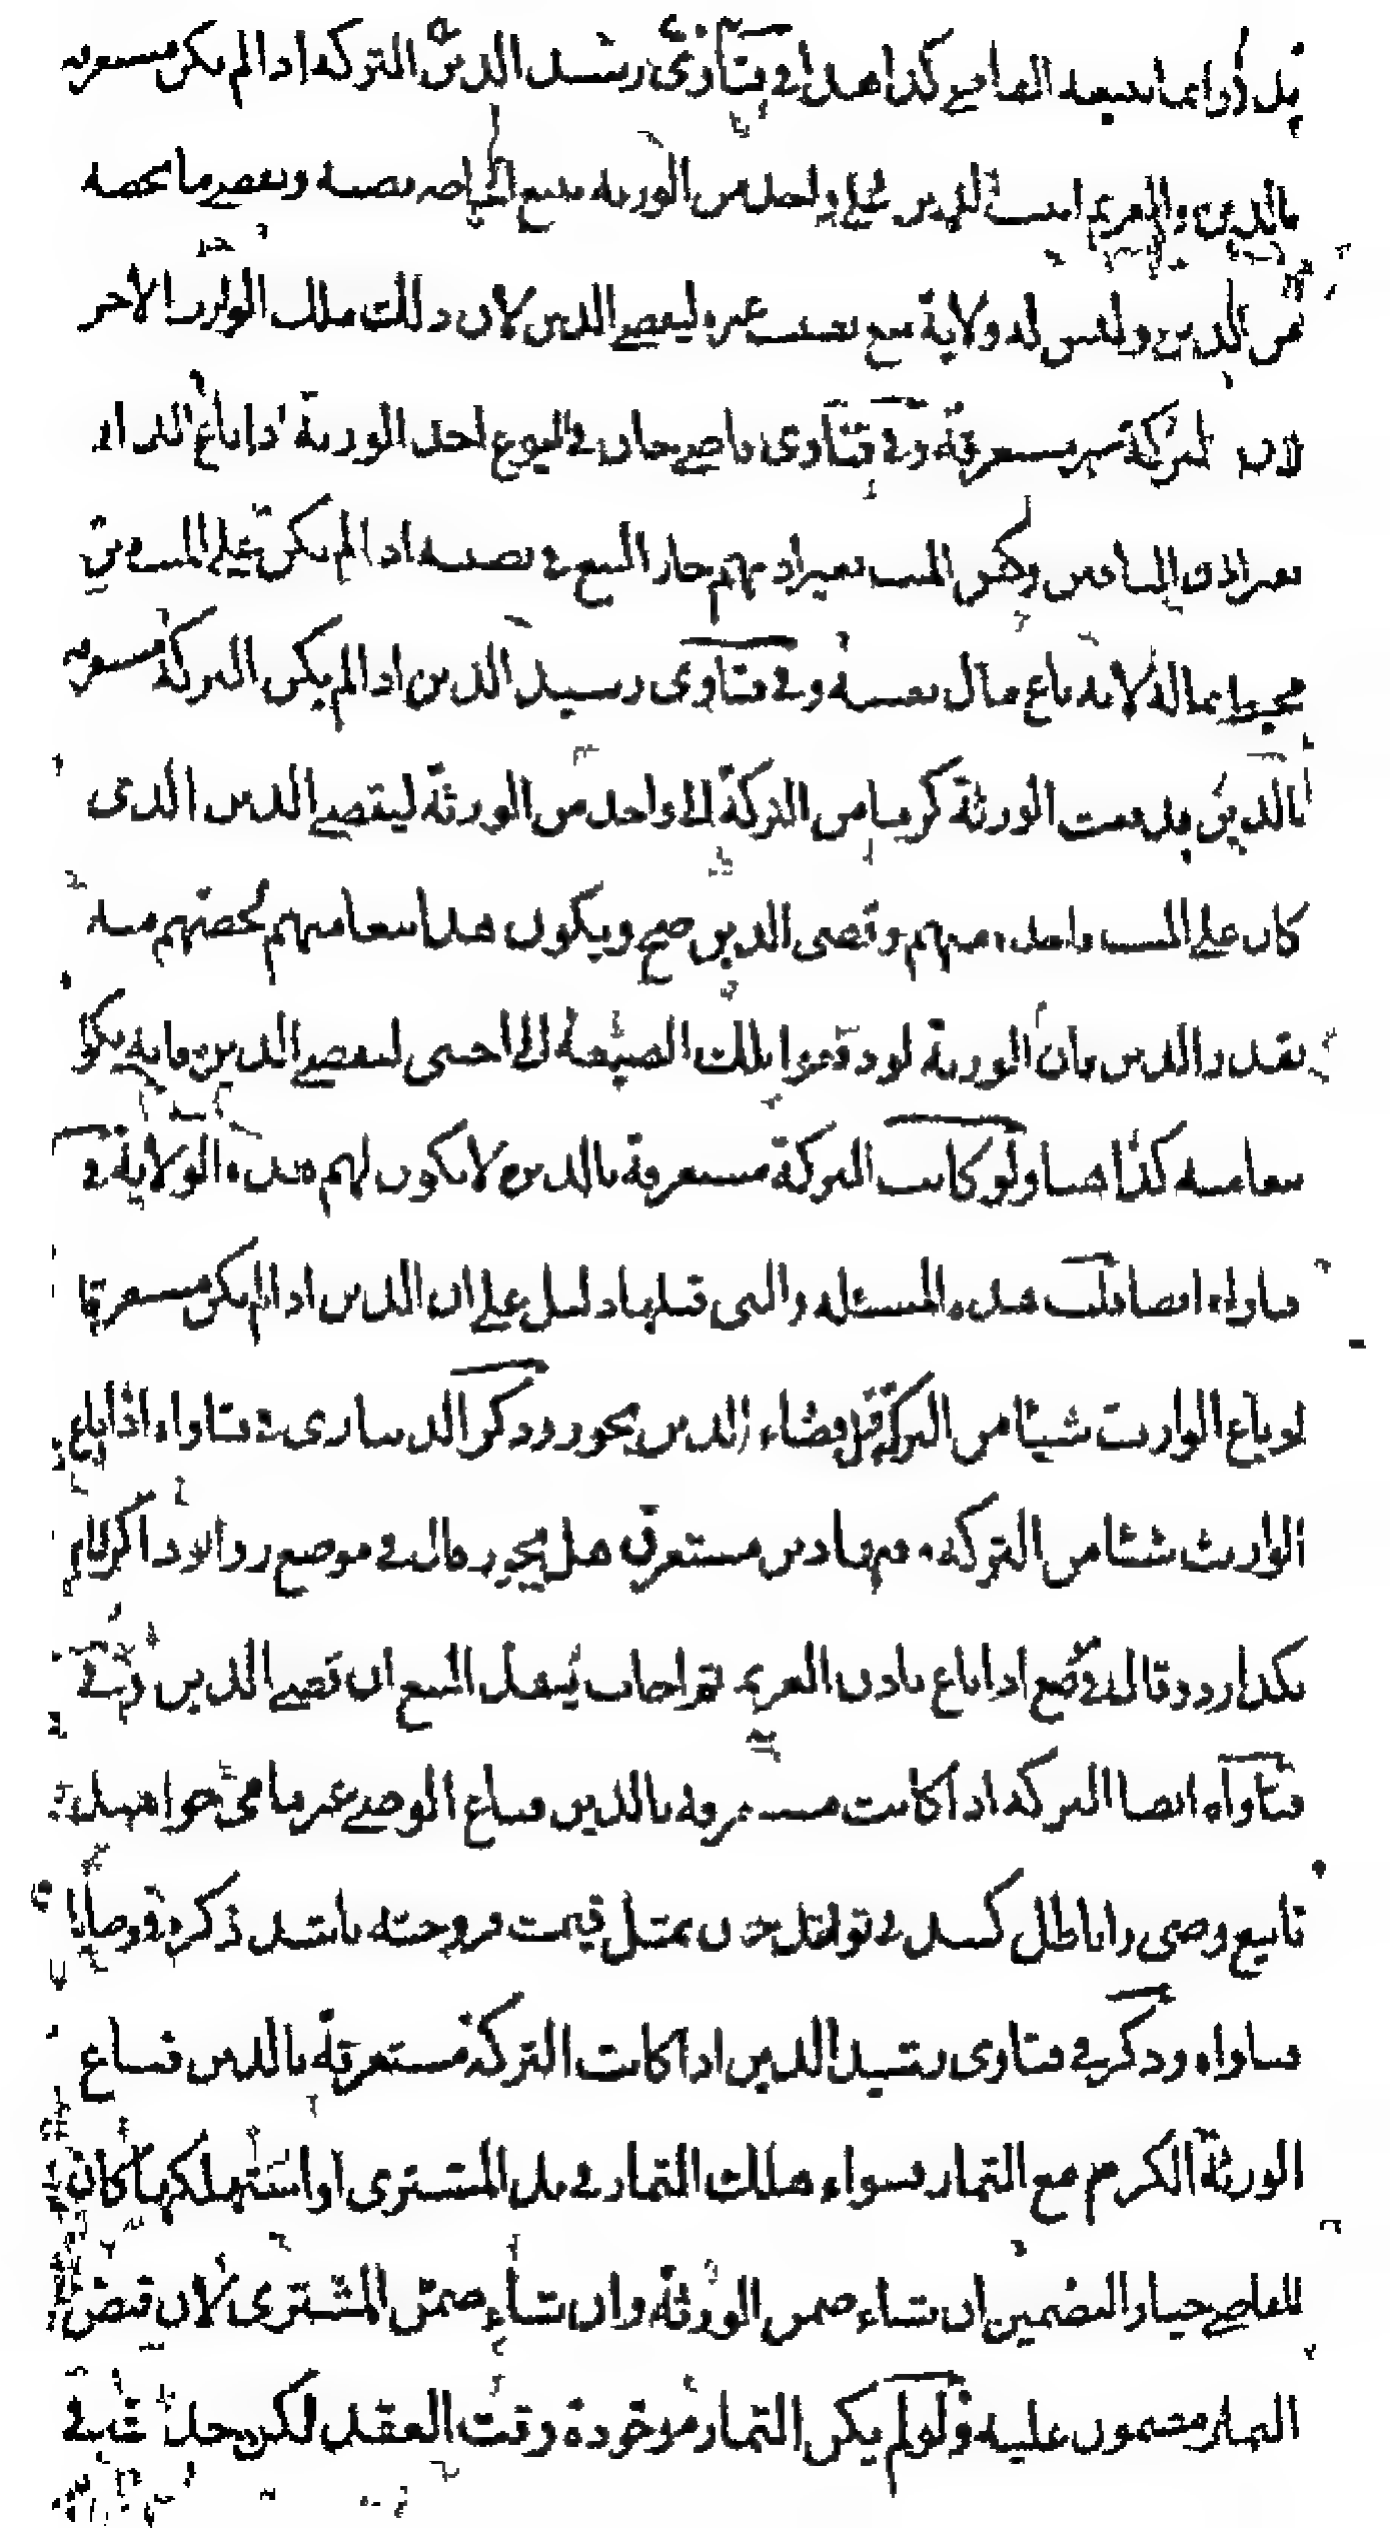 وانما يبيعه القاضي كذا هذا في فتاوى رشيد الدين التركة اذا لم يكن مستغرقة
بالدين والغريم اثبت الدين على واحد من الورثة يبيع الحاصة نصيبه ويقضي ما يخصه
من الدين وليس له ولاية بيع نصيب غيره ليقضي الدين لان ذلك ملك الوارث الاخر
لان التركة غير مستغرقة وفي فتاوى قاضي خان في البيوع احد الورثة اذا باع الدار او
بغير اذن الباقين وكفن الميت بغير اذنهم جاز البيع في نصيبه اذا لم يكن على الميت دين
محيط بماله لانه باع مال نفسه وفي فتاوى رشيد الدين اذا لم يكن التركة مستغرقة
بالدين فدفعت الورثة كرما من التركة الى واحد من الورثة ليقضي الدين الذي
كان على الميت واحد منهم وقضى الدين صح ويكون هذا بيعا منهم لحصتهم منه
بقدر الدين فان الورثة لو دفعوا تلك الضيعة الى اجنبى ليقضي الدين فانه يكون
بيعا منه كذا هنا ولو كانت التركة مستغرقة بالدين لا يكون لهم هذه الولاية وفي
فتاواه ايضا قلت هذه المسئلة والتى قبلها دليل على ان الدين اذا لم يكن مستغرقا
لو باع الوارث شيئا من التركة قبل قضاء الدين يجوز وذكر الدينارى في فتاواه اذا باع
الوارث شيئا من التركة وفيها دين مستغرق هل يجوز قال في موضع روا لا اذا كر قايم
بكدارد وقال في موضع اذا باع باذن الغريم ثم اجاب ينفذ البيع ان قضي الدين وفي
فتاواه ايضا التركة اذا كانت مستغرقة بالدين فباع الوصي غرما مى خواهند
تا بيع وصى را باطل كنند نتوانند چون بمثل قيمت فروخته باشد ذكره في وصايا
فتاواه وذكر في فتاوى رشيد الدين اذا كانت التركة مستغرقة بالدين فباع
الورثة الكرم مع الثمار فسواء هلك الثمار في يد المشترى او استهلكها كان
للقاضي خيار التضمين ان شاء ضمن الورثة وان شاء ضمن المشترى لان قبض
الثمار مضمون عليه ولو لم يكن الثمار موجودة وقت العقد لكن حدثت في